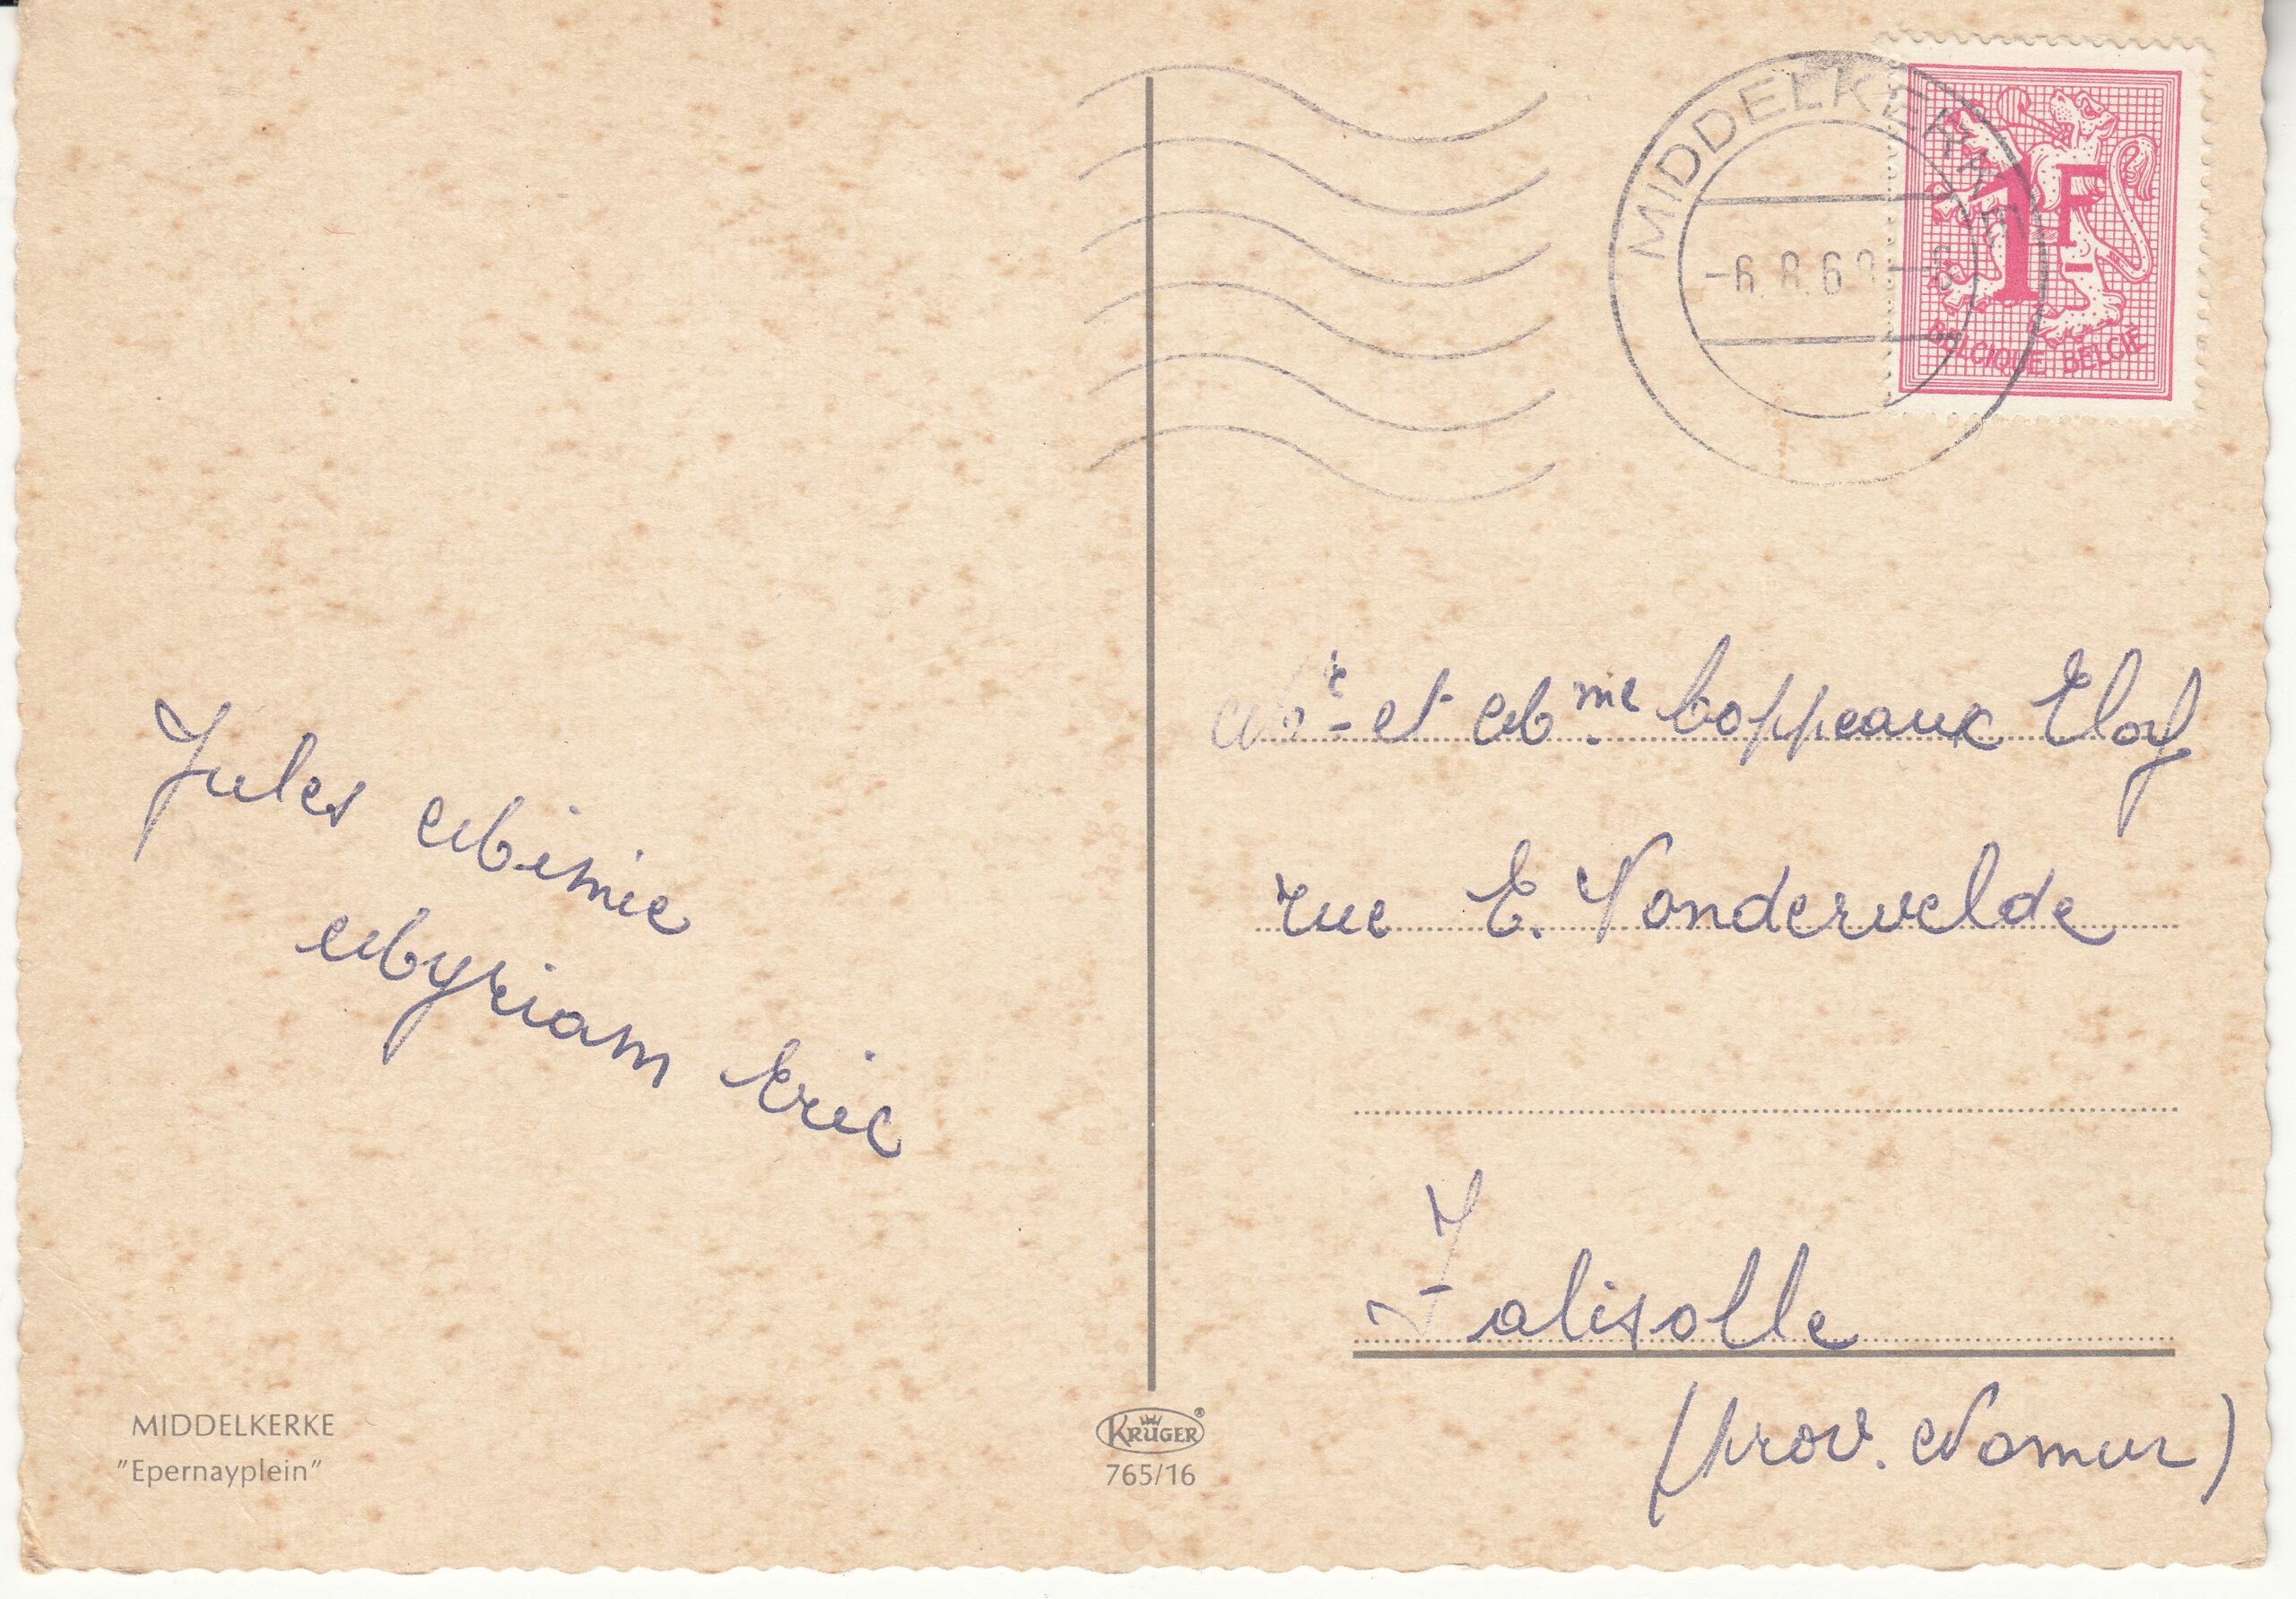 MIDDELKERKE
1F
BELGIQUE BELGIE
Mr et Mme Coppeaux Eloy
rue E. Vandervelde
Falisolle
(prov. Namur)
Jules Mimie
Myriam Eric
MIDDELKERKE
"Epernayplein"
KRÜGER®
765/16